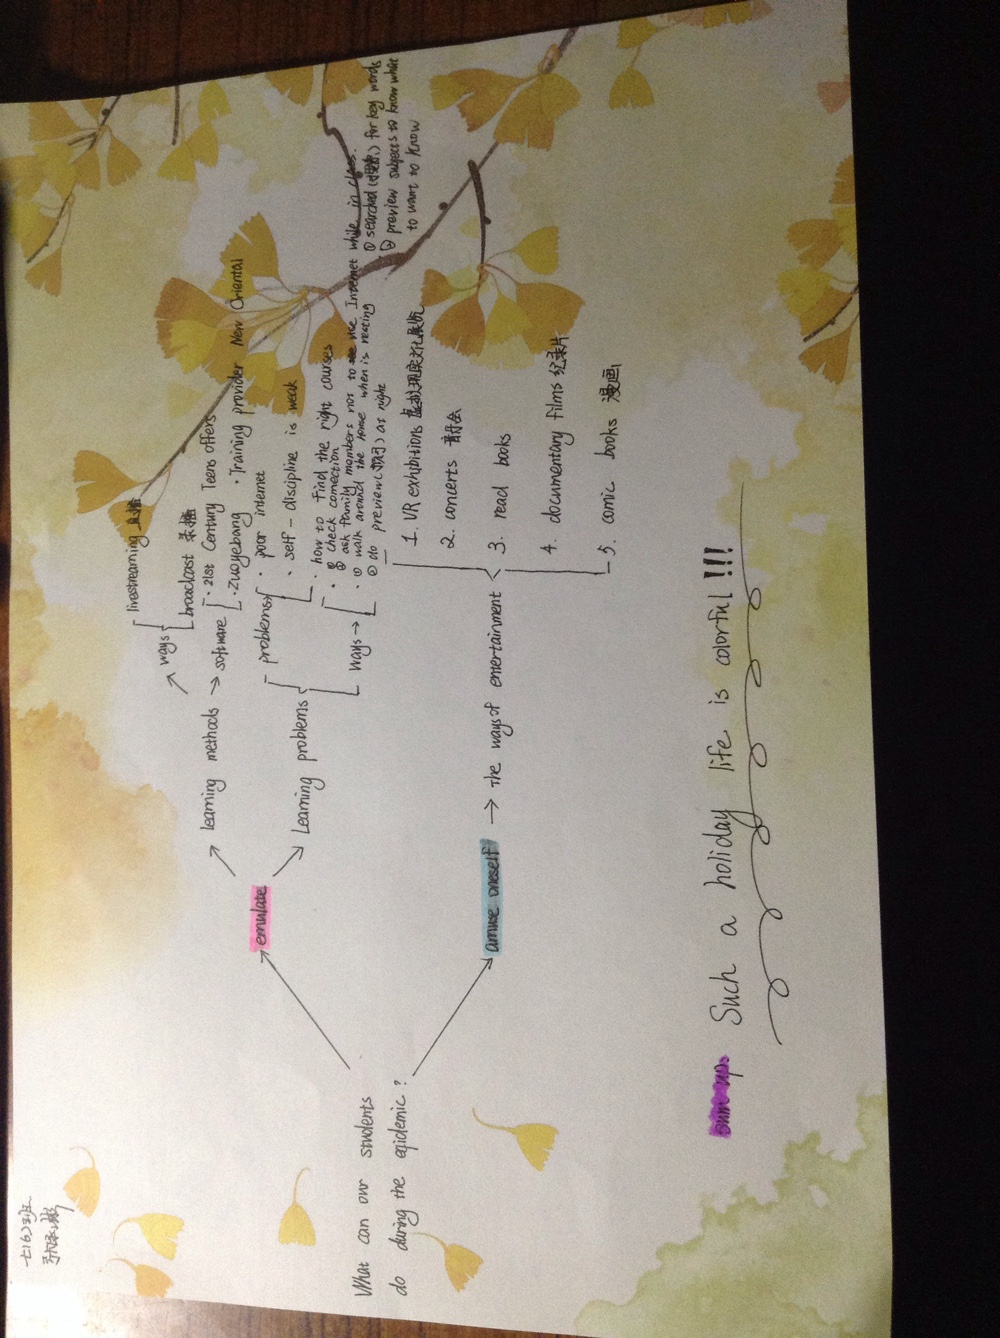 七(6)班
What can our students
do during the epidemic?
emulate
learning methods →
ways
livestreaming 直播
broadcast 录播
software
· 21st Century Teens offers
· zuoyebang · Training provider New Oriental
learning problems
problems
· poor internet
· self-discipline is weak
ways →
· how to find the right courses
① check connection
② ask family members not to use Internet while in class.
· ① walk around the house when is resting
② do preview(预习) at night
① searched(搜索) for key words
② preview subjects to know what
to want to know
amuse oneself → the ways of entertainment
1. VR exhibitions 虚拟现实文化展览
2. concerts 音乐会
3. read books
4. documentary films 纪录片
5. comic books 漫画
sum up. Such a holiday life is colorful!!!